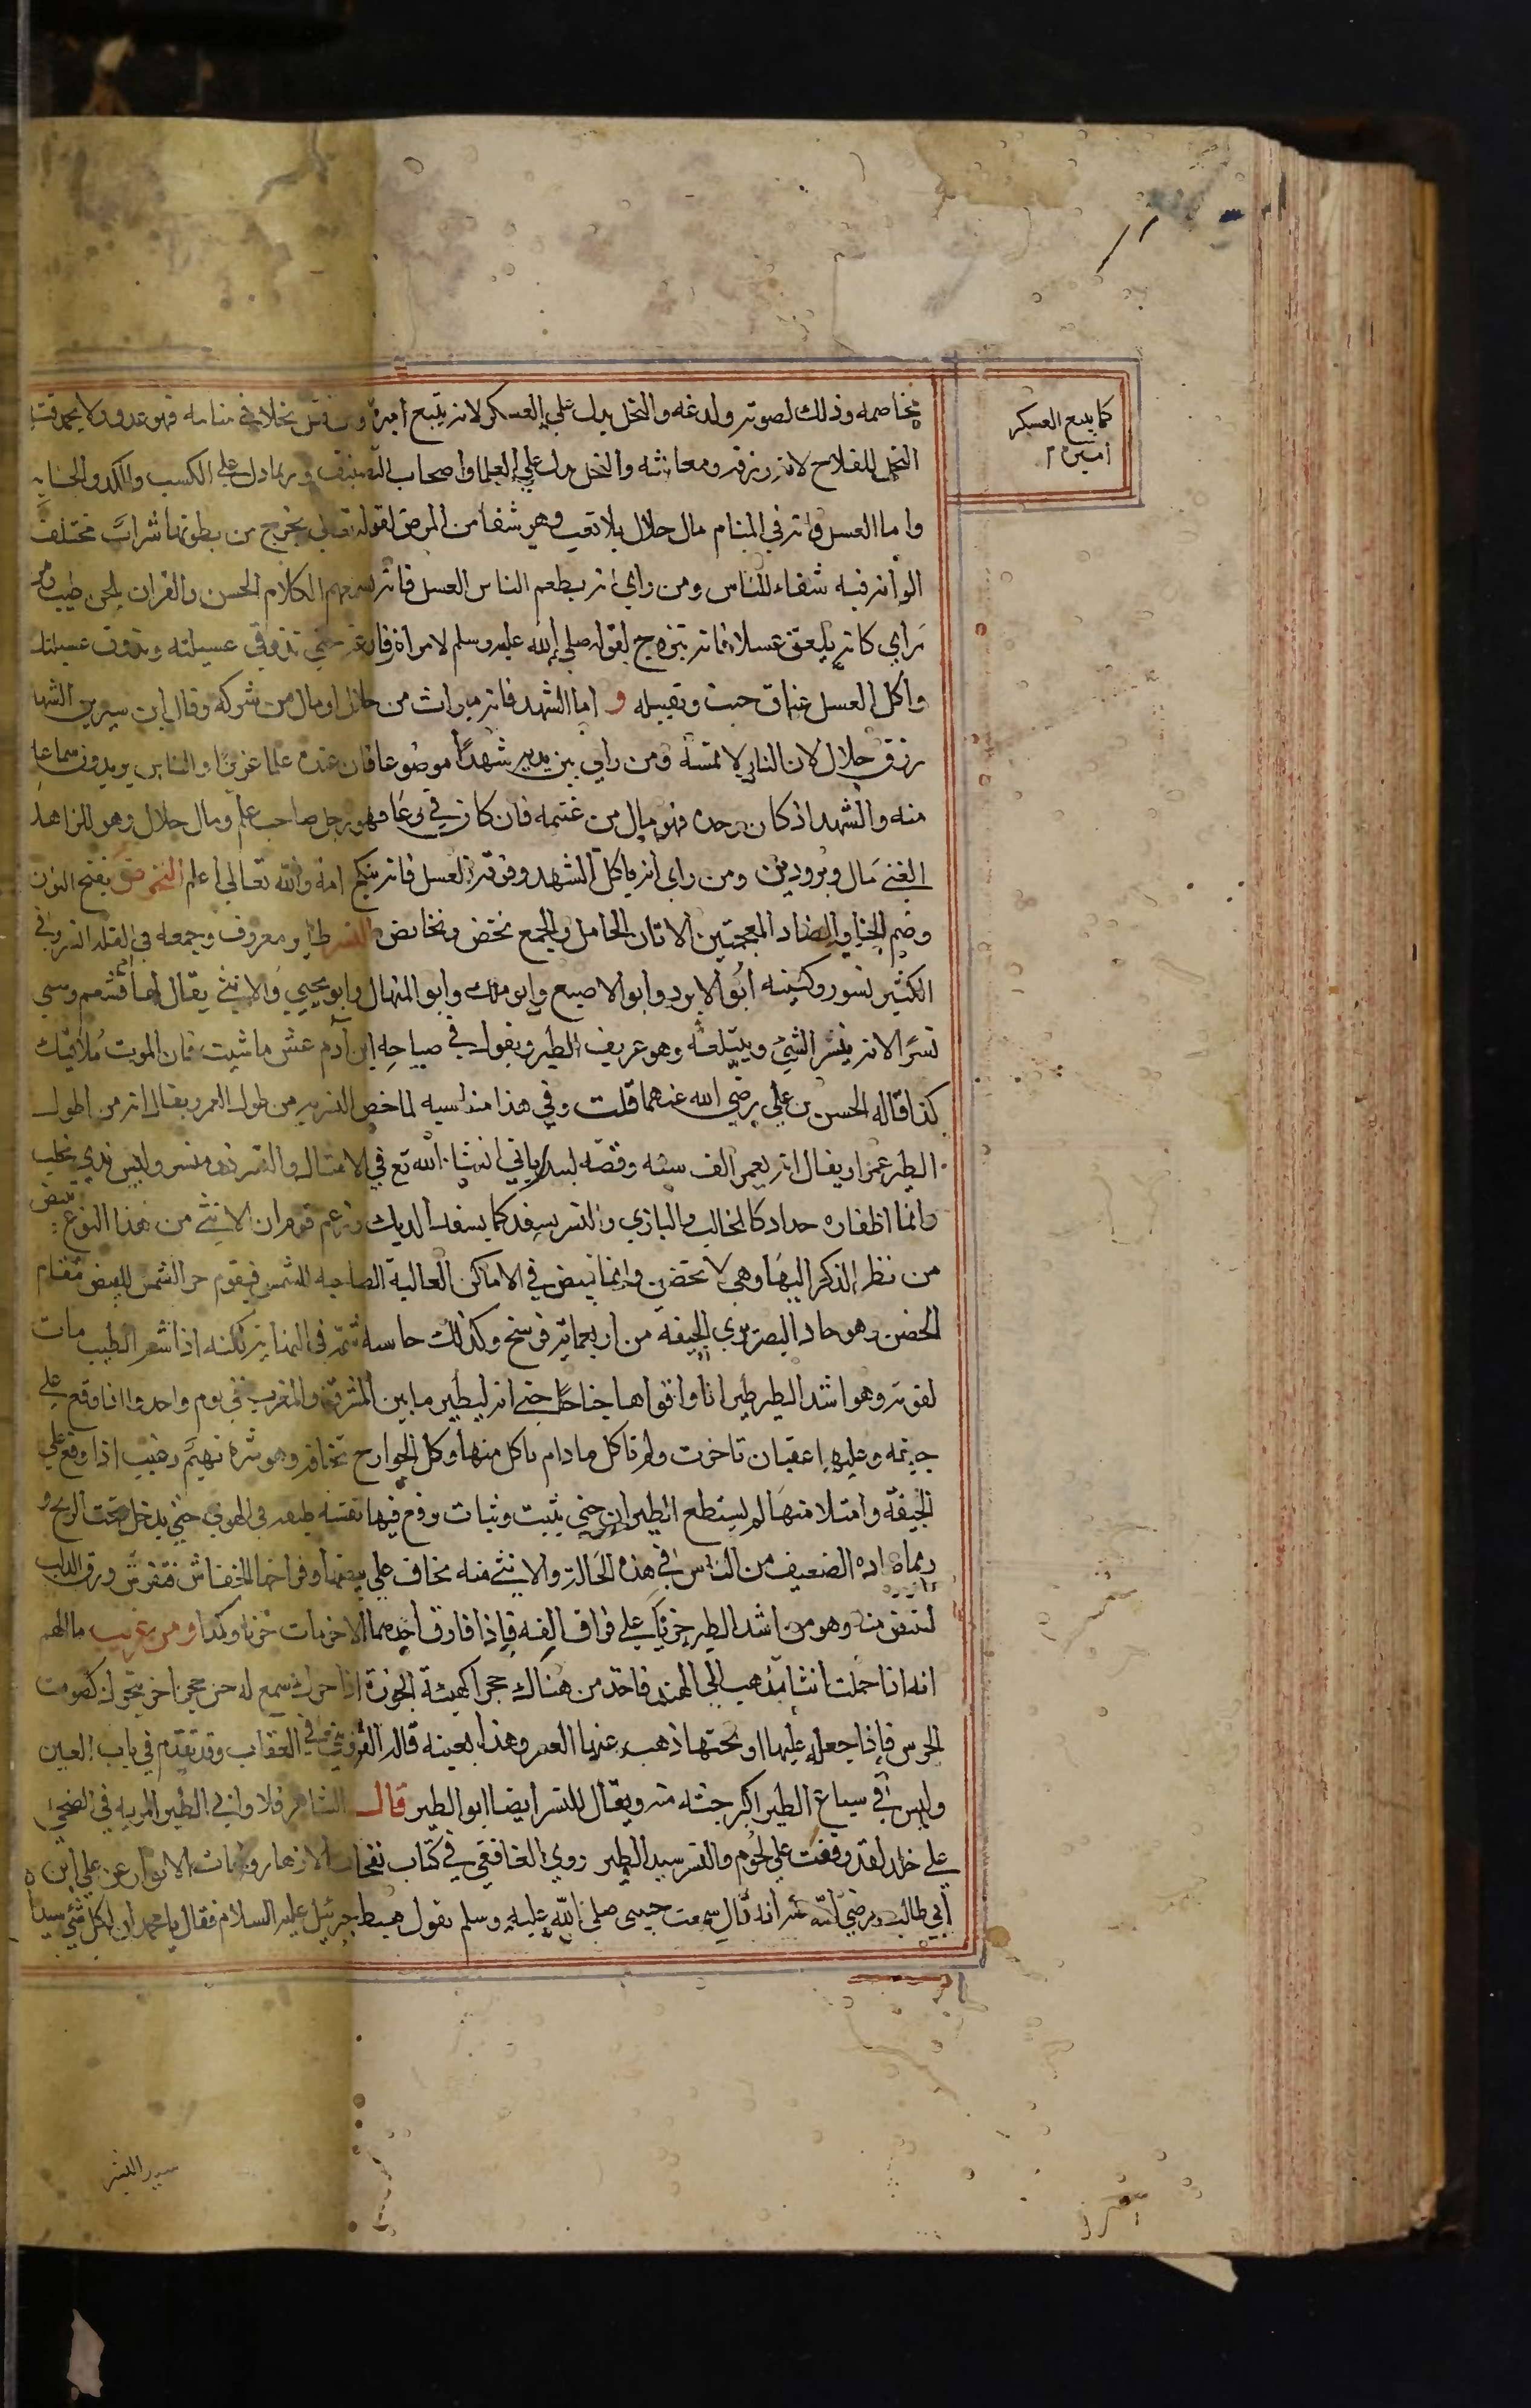 يخاصمه وذلك لصوته ولدغه والنحل يدل علي العسكر لانه يتبع اميره ومن قتل نحلا في منامه فهو عدو ولا يحمد قتل
كما يتبع العسكر
اميره
النحل للفلاح لانه رزقه ومعاشه والنحل يدل علي العلما واصحاب التصنيف وربما دل علي الكسب والكد والجنايه
واما العسل فانه في المنام مال حلال بلا تعب وهي شفا من المرض لقوله تعالي يخرج من بطونها شراب مختلف
الوانه فيه شفاء للناس ومن راي انه يطعم الناس العسل فانه يسمعهم الكلام الحسن والقران بلحن طيب ومن
راي كانه يلعق عسلا فانه يتزوج لقوله صلي الله عليه وسلم لامراة رفاعه حتي تذوقي عسيلته ويذوق عسيلتك
واكل العسل عناق حبيب وتقبيله و اما الشهد فانه ميراث من حلال او مال من شركه وقال ابن سيرين الشهد
رزق حلال لان النار لا تمسه ومن راي بين يديه شهدا موضوعا فان عنده علما عزيزا والناس يريدون سماعه
منه والشهد اذ كان وحده فهو مال من غنيمه فان كان في وعا فهو رجل صاحب علم ومال حلال وهو للزاهد
الغني مال وبرود دين ومن راي انه ياكل الشهد وفوقه العسل فانه ينكح امه والله تعالي اعلم النخوص بفتح النون
وضم الخا والضاد المعجمتين الاتان الحامل والجمع نخض ونخايض النسر طاير معروف وجمعه في القله انسر وفي
الكثير نسور وكنيته ابو الابرد وابو الاصبع وابو ملك وابو المنهال وابو يحيي والانثي يقال لها ام قشعم وسمي
نسرا لانه ينسر الشي ويبتلعه وهو عريف الطير ويقول في صياحه ابن آدم عش ما شيت فان الموت ملاقيك
كذا قاله الحسن بن علي رضي الله عنهما قلت وفي هذا مناسبه لما خص النسر به من طول العمر ويقال انه من اطول
الطير عمرا ويقال انه يعمر الف سنه وقصه لبد تاتي ان شا الله تع في الامثال والنسر ذو منسر وليس بذي مخلب
وانما اظفاره حداد كالمخالب والبازي والنسر يسفد كما يسفد الديك وزعم قوم ان الانثي من هذا النوع تبيض
من نظر الذكر اليها وهي لا تحضن وانما تبيض في الاماكن العالية الضاحيه للشمس فيقوم حر الشمس للبيض مقام
الحضن وهو حاد البصر يري الجيفه من اربعمايه فرسخ وكذلك حاسه شمه في النهايه لكنه اذا شم الطيب مات
لفوته وهو اشد الطير طيرانا واقواها جناحا حتي انه ليطير ما بين المشرق والمغرب في يوم واحد واذا وقع علي
جيفه وعليها عقبان تاخرت ولم تاكل ما دام ياكل منها وكل الجوارح تخافه وهو شره نهم رغيب اذا وقع علي
الجيفه وامتلا منها لم يستطع الطيران حتي يثبت وثبات يرفع فيها نفسه طبقه في الهوي حتي يدخل تحت الريح و
ربما صاده الضعيف من الناس في هذه الحالة والانثي منه تخاف علي بيضها وفراخها الخفاش فتفرش ورق الدلب
لتنفر منه وهو من اشد الطير حزنا علي فراق الفه فاذا فارق احدهما الاخر مات حزنا وكمدا ومن غريب ما الهم
انه اذا حملت انثاه ذهب الي الهند فاخذ من هناك حجرا كهيئة الجوزة اذا حرك يسمع له حس حجر اخر يتحرك كصوت
الجرس فاذا جعله عليها او تحتها اذهب عنها العسر وهذا بعينه قاله القزويني في العقاب وقد تقدم في باب العين
وليس في سباع الطير اكبر جثه منه ويقال للنسر ايضا ابو الطير قال الشاعر فلا وابي الطير المربه في الضحي
علي خالد لقد وقفت علي لحوم والنسر سيد الطير روي الغافقي في كتاب نفحات الازهار ولمحات الانوار عن علي ابن
ابي طالب رضي الله عنه انه قال سمعت حبيبي صلي الله عليه وسلم يقول هبط جبرئيل عليه السلام فقال يا محمد ان لكل شئ سيدا
سيد البشر